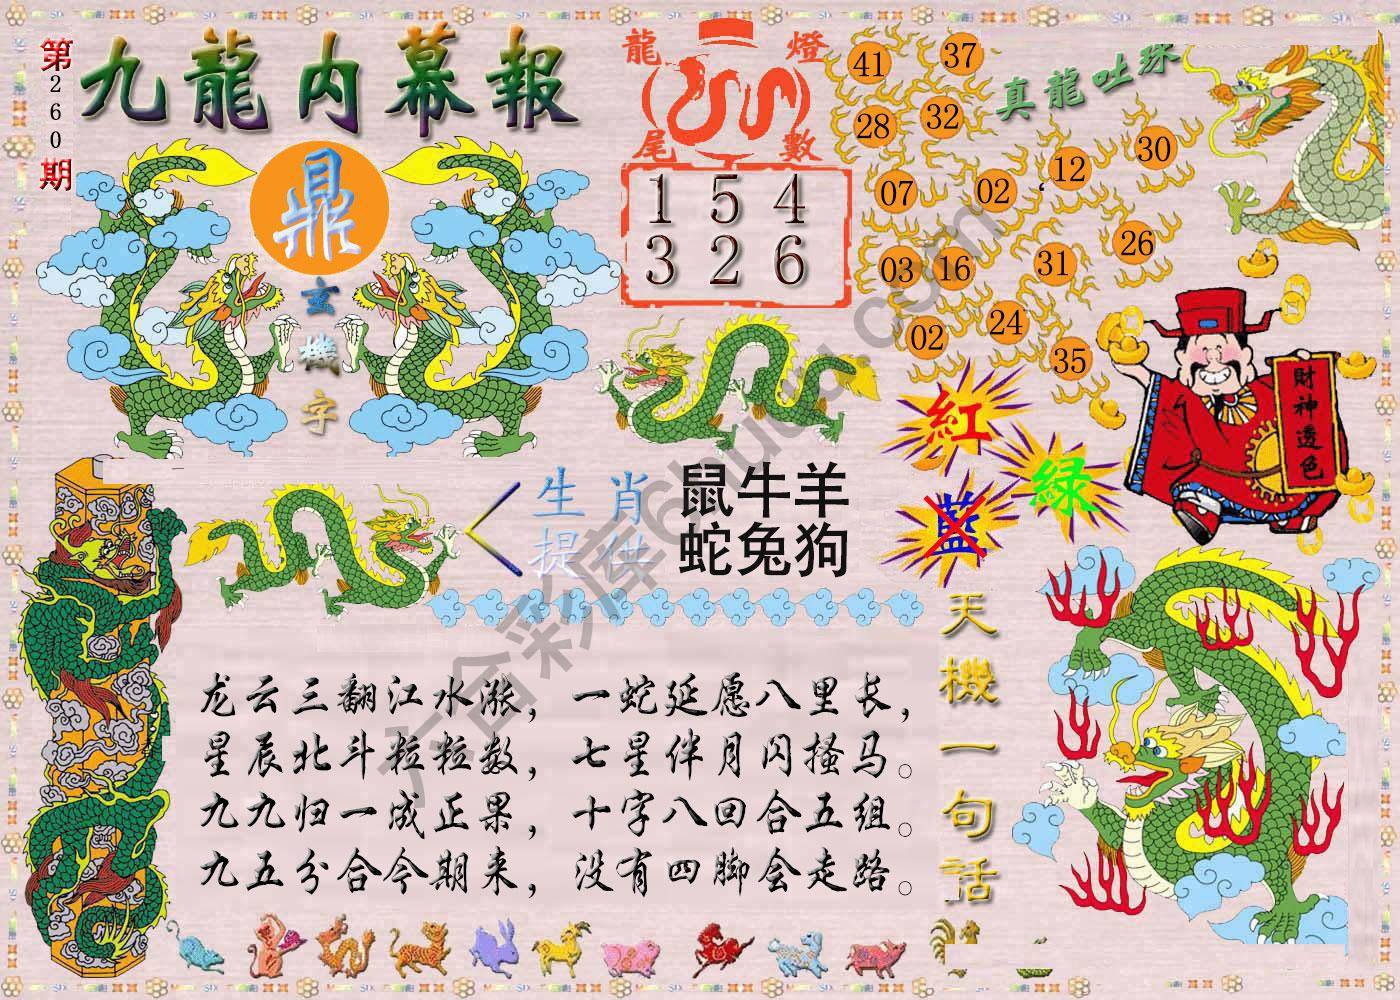 第260期
九龍内幕報
鼎
玄機字
龍燈
尾數
1 5 4
3 2 6
真龍吐珠
41 37
28 32
07 02 12 30
03 16 31 26
02 24 35
財神透色
紅
綠
藍
生肖 鼠牛羊
提供 蛇兔狗
天機一句話
龙云三翻江水涨，一蛇延愿八里长，
星辰北斗粒粒数，七星伴月闪搔马。
九九归一成正果，十字八回合五组。
九五分合今期来，没有四脚会走路。